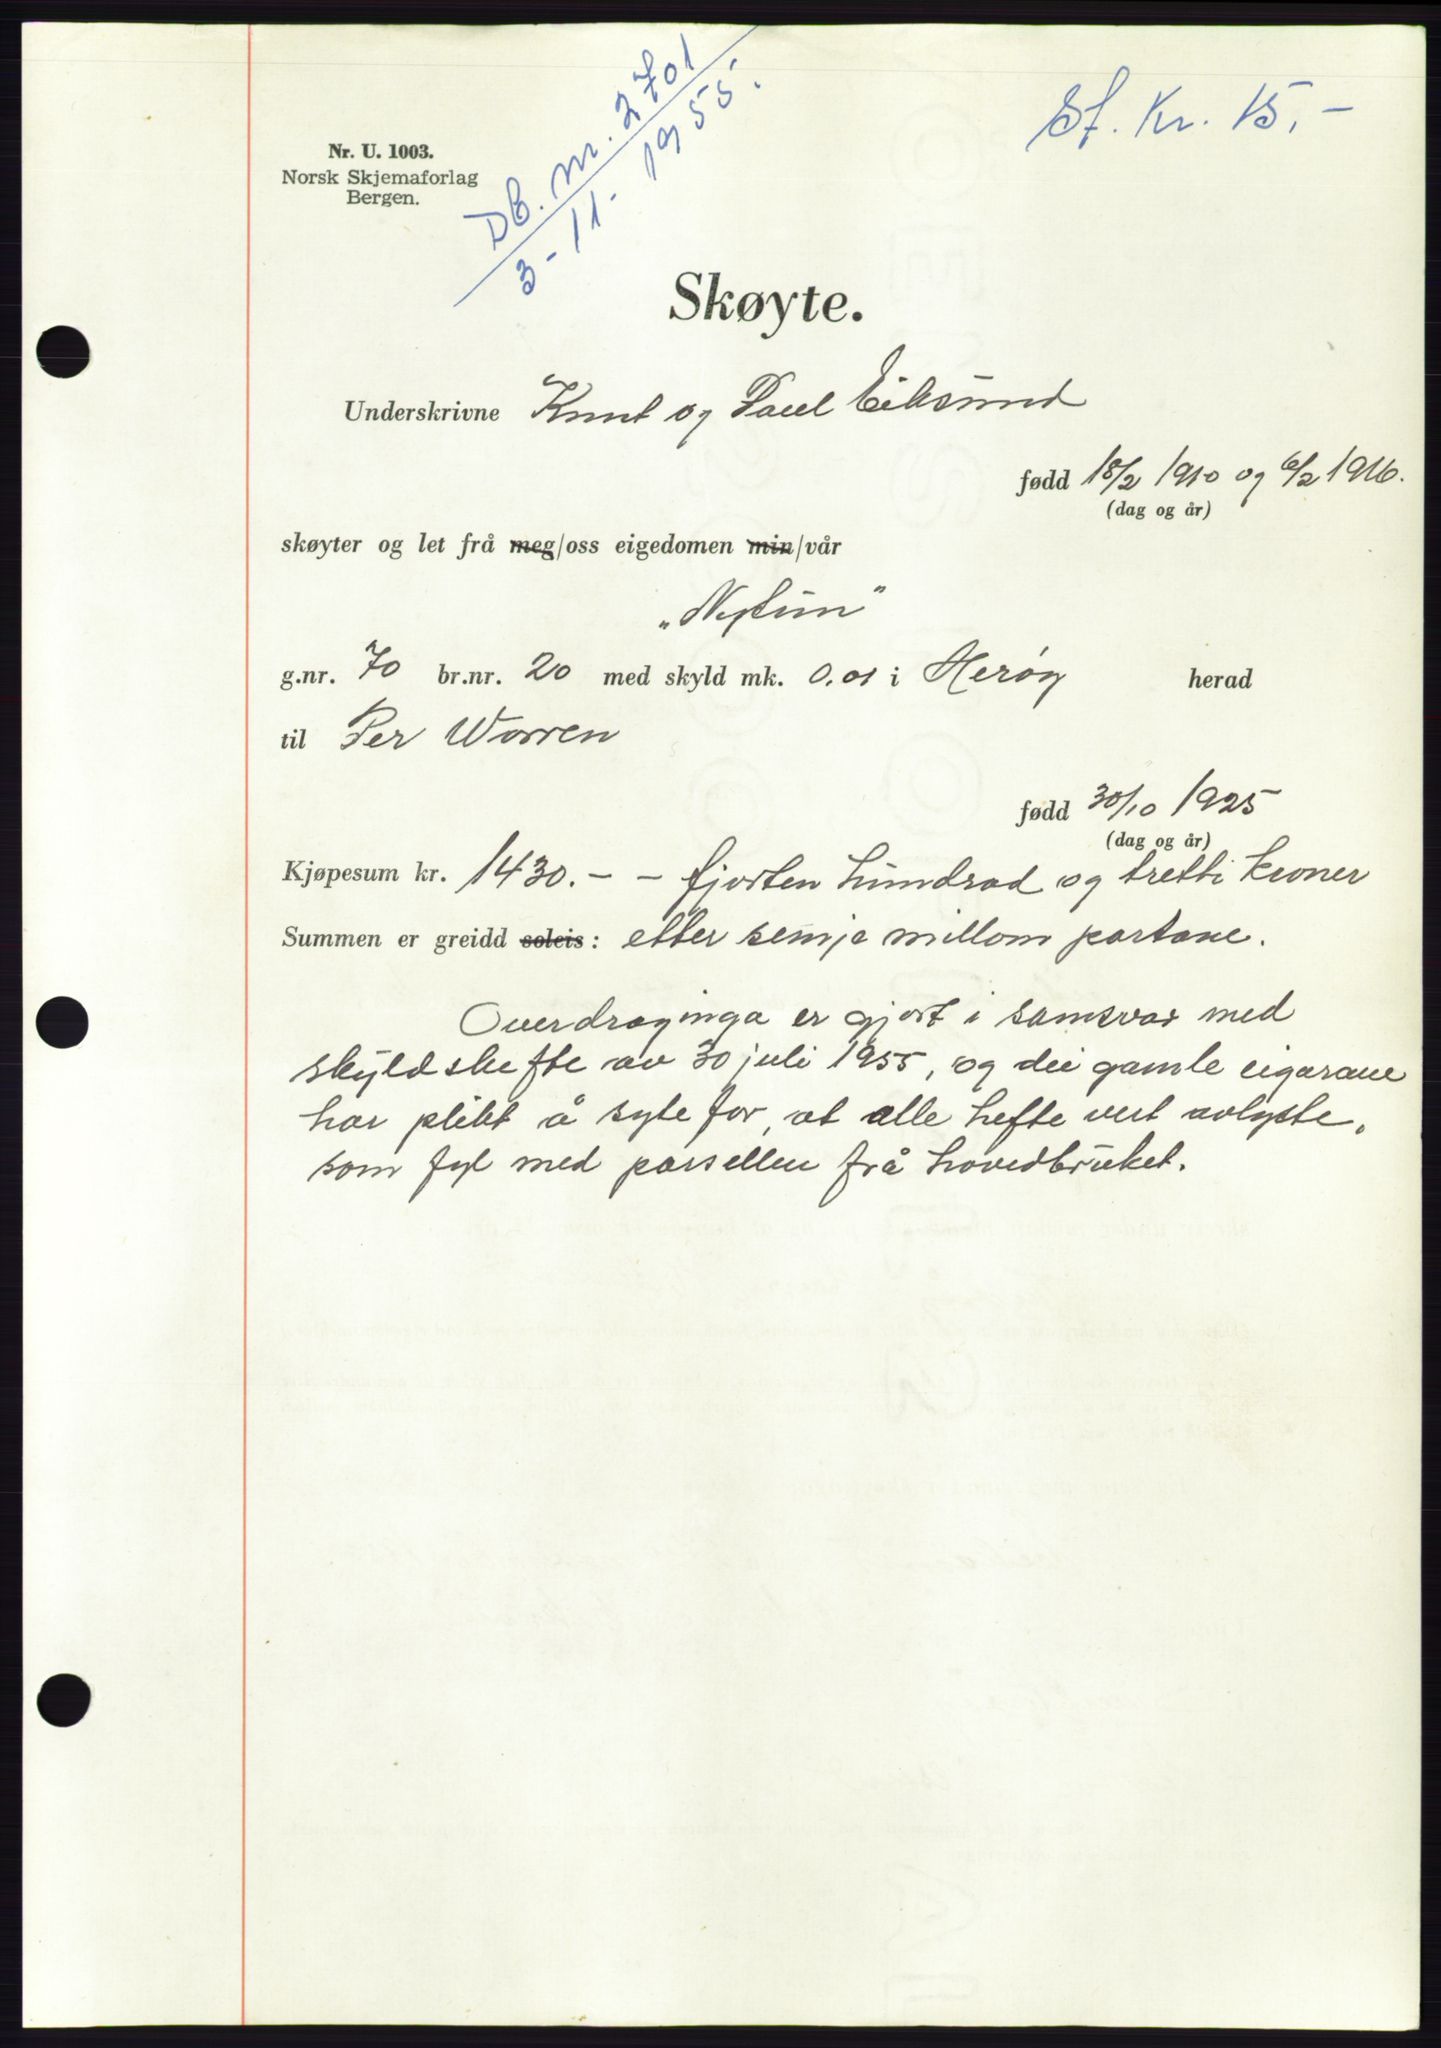 St. Kr. 15.-
Db. nr. 2701
3-11-1955.
Nr. U. 1003.
Norsk Skjemaforlag
Bergen.
Skøyte.
Underskrivne Knut og Paul Eiksund
fødd 18/2 1910 og 6/2 1916.
(dag og år)
skøyter og let frå meg/oss eigedomen min/vår
"Neptun"
g.nr. 70 br.nr. 20 med skyld mk. 0.01 i Herøy herad
til Per Worren
fødd 30/10 1925
(dag og år)
Kjøpesum kr. 1430.- - fjorten hundrad og tretti kroner
Summen er greidd soleis: etter semje millom partane.
Overdraginga er gjort i samsvar med
skyldskifte av 30 juli 1955, og dei gamle eigarane
har plikt å syte for, at alle hefte vert avlyste,
som fyl med parsellen frå hovedbruket.